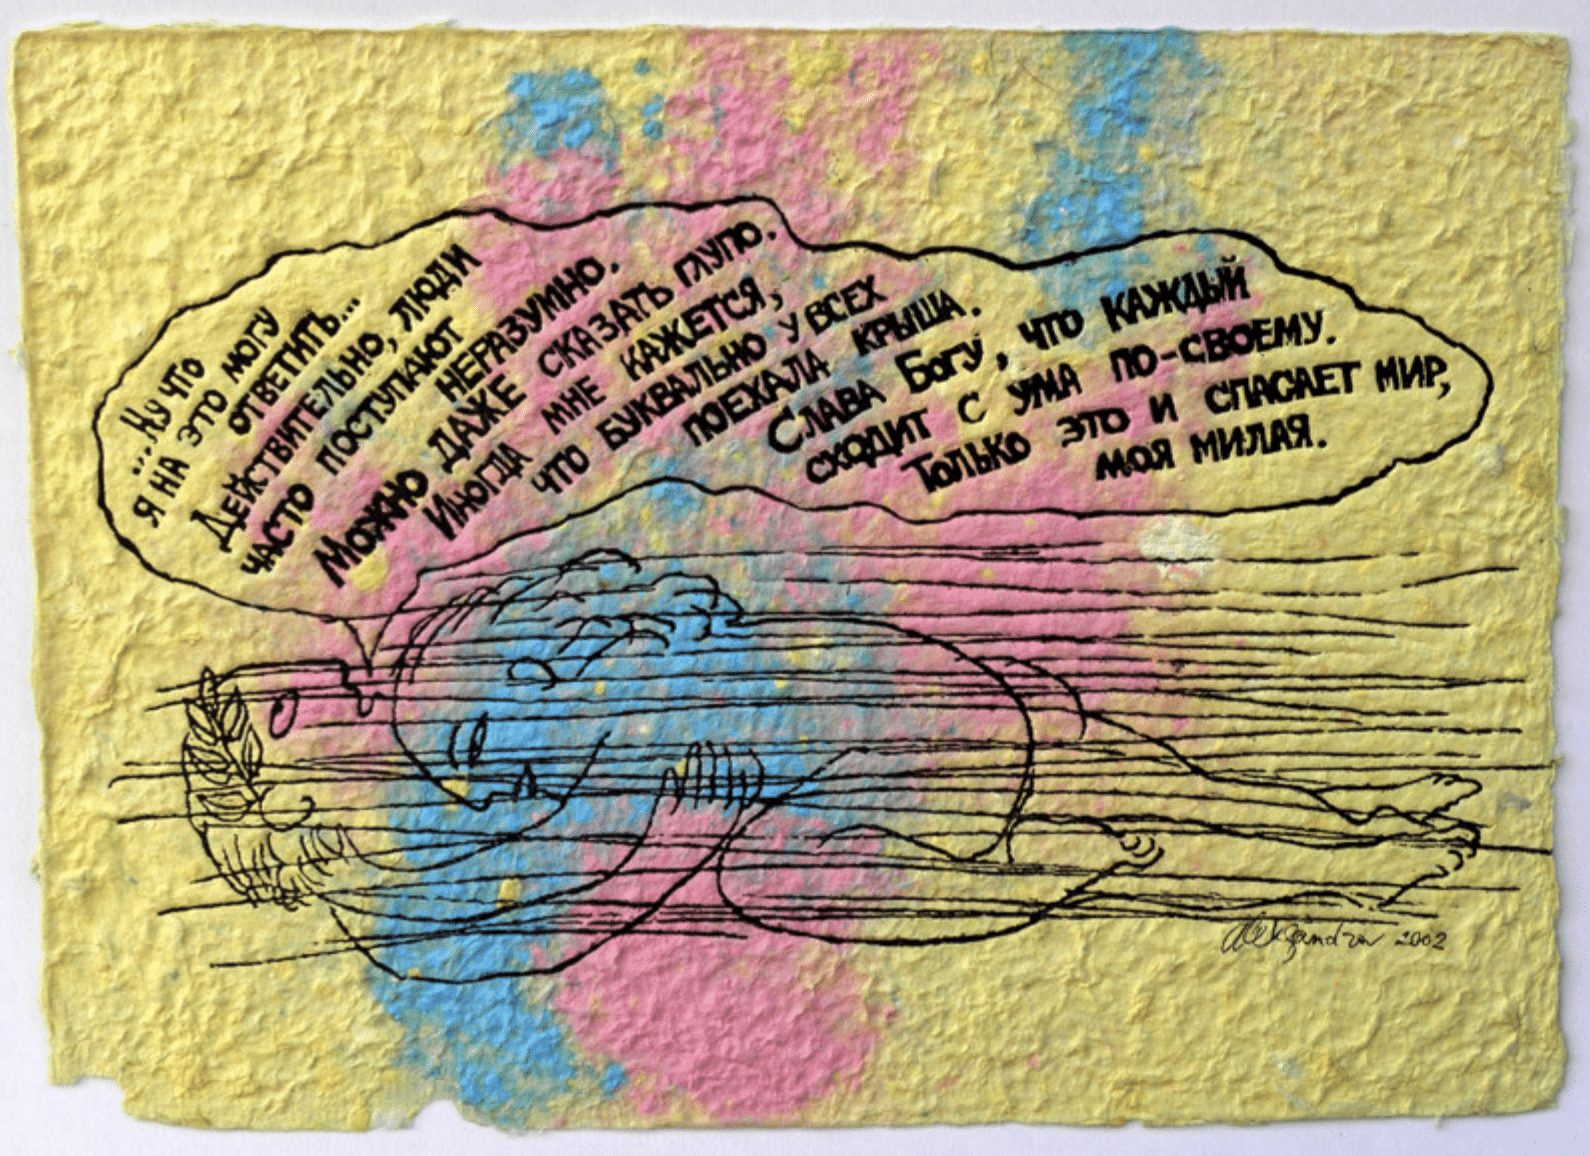 ...Ну что
я на это могу
ответить...
Действительно, люди
часто поступают
неразумно.
Можно даже сказать глупо.
Иногда мне кажется,
что буквально у всех
поехала крыша.
Слава Богу, что каждый
сходит с ума по-своему.
Только это и спасает мир,
моя милая.
Aleksandrov 2002